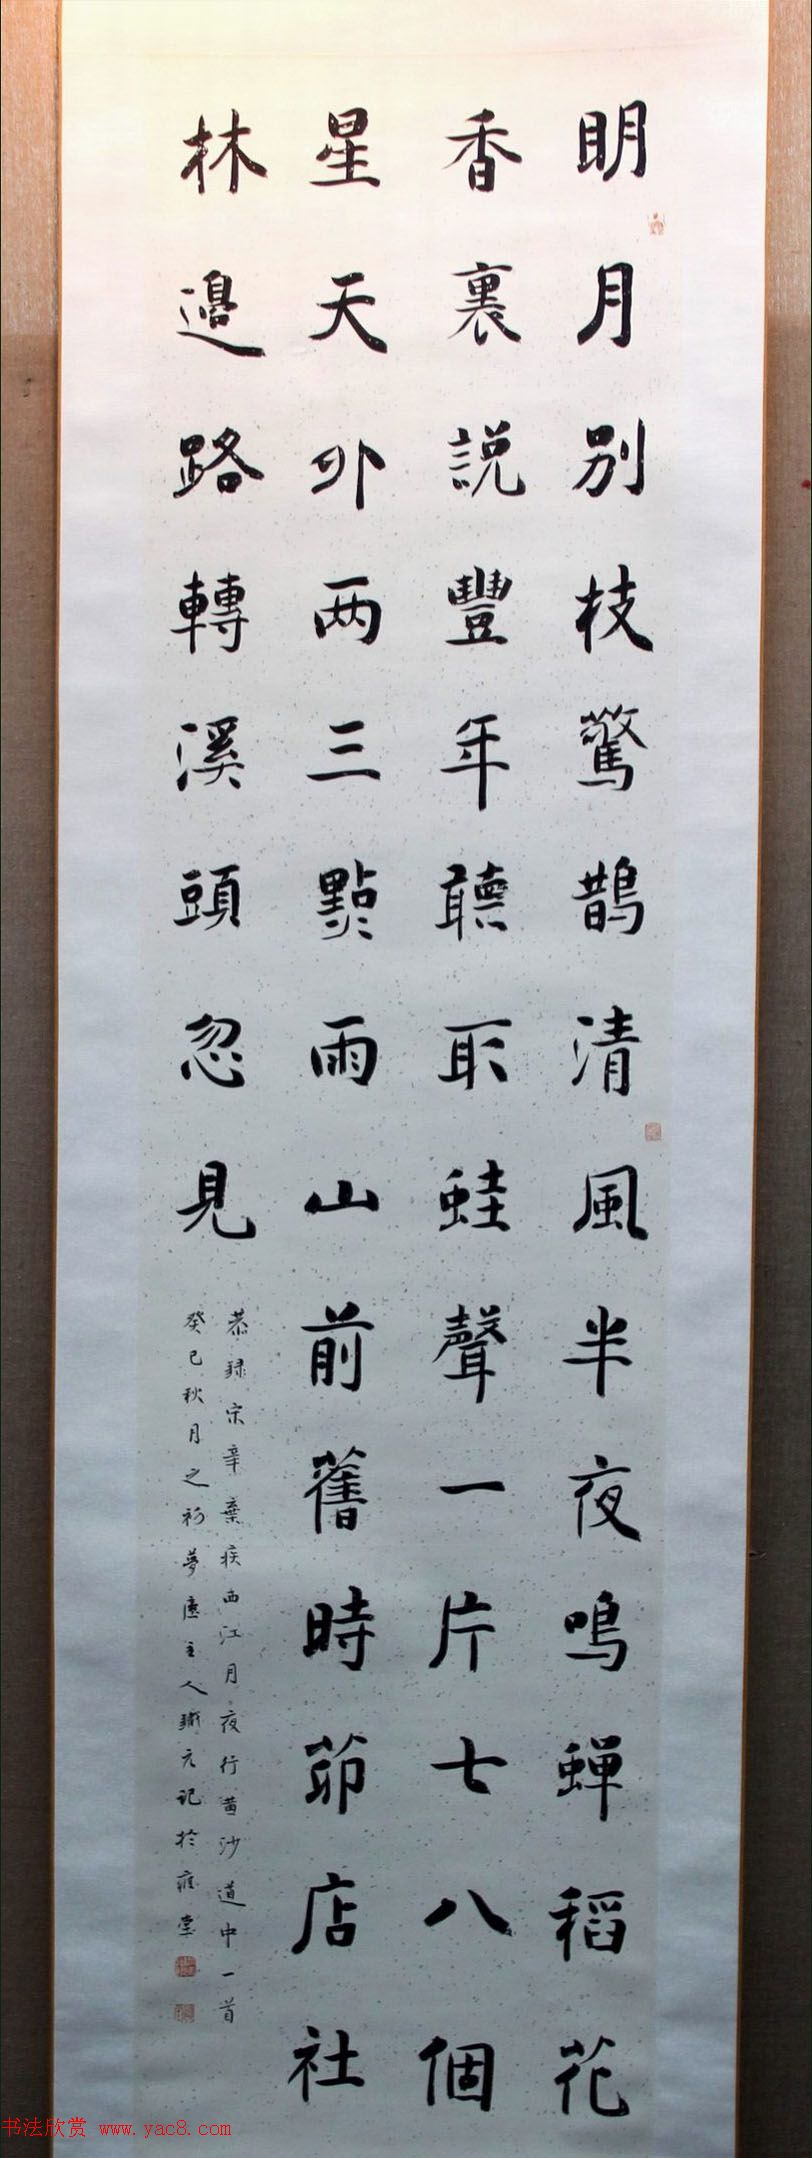 明月别枝驚鵲清風半夜鳴蟬稻花
香裏説豐年聽取蛙聲一片七八個
星天外两三點雨山前舊時茆店社
林邊路轉溪頭忽見
恭録宋辛棄疾西江月夜行黄沙道中一首
癸巳秋月之初夢廬主人鐵元記於雍堂
书法欣赏 www.yac8.com